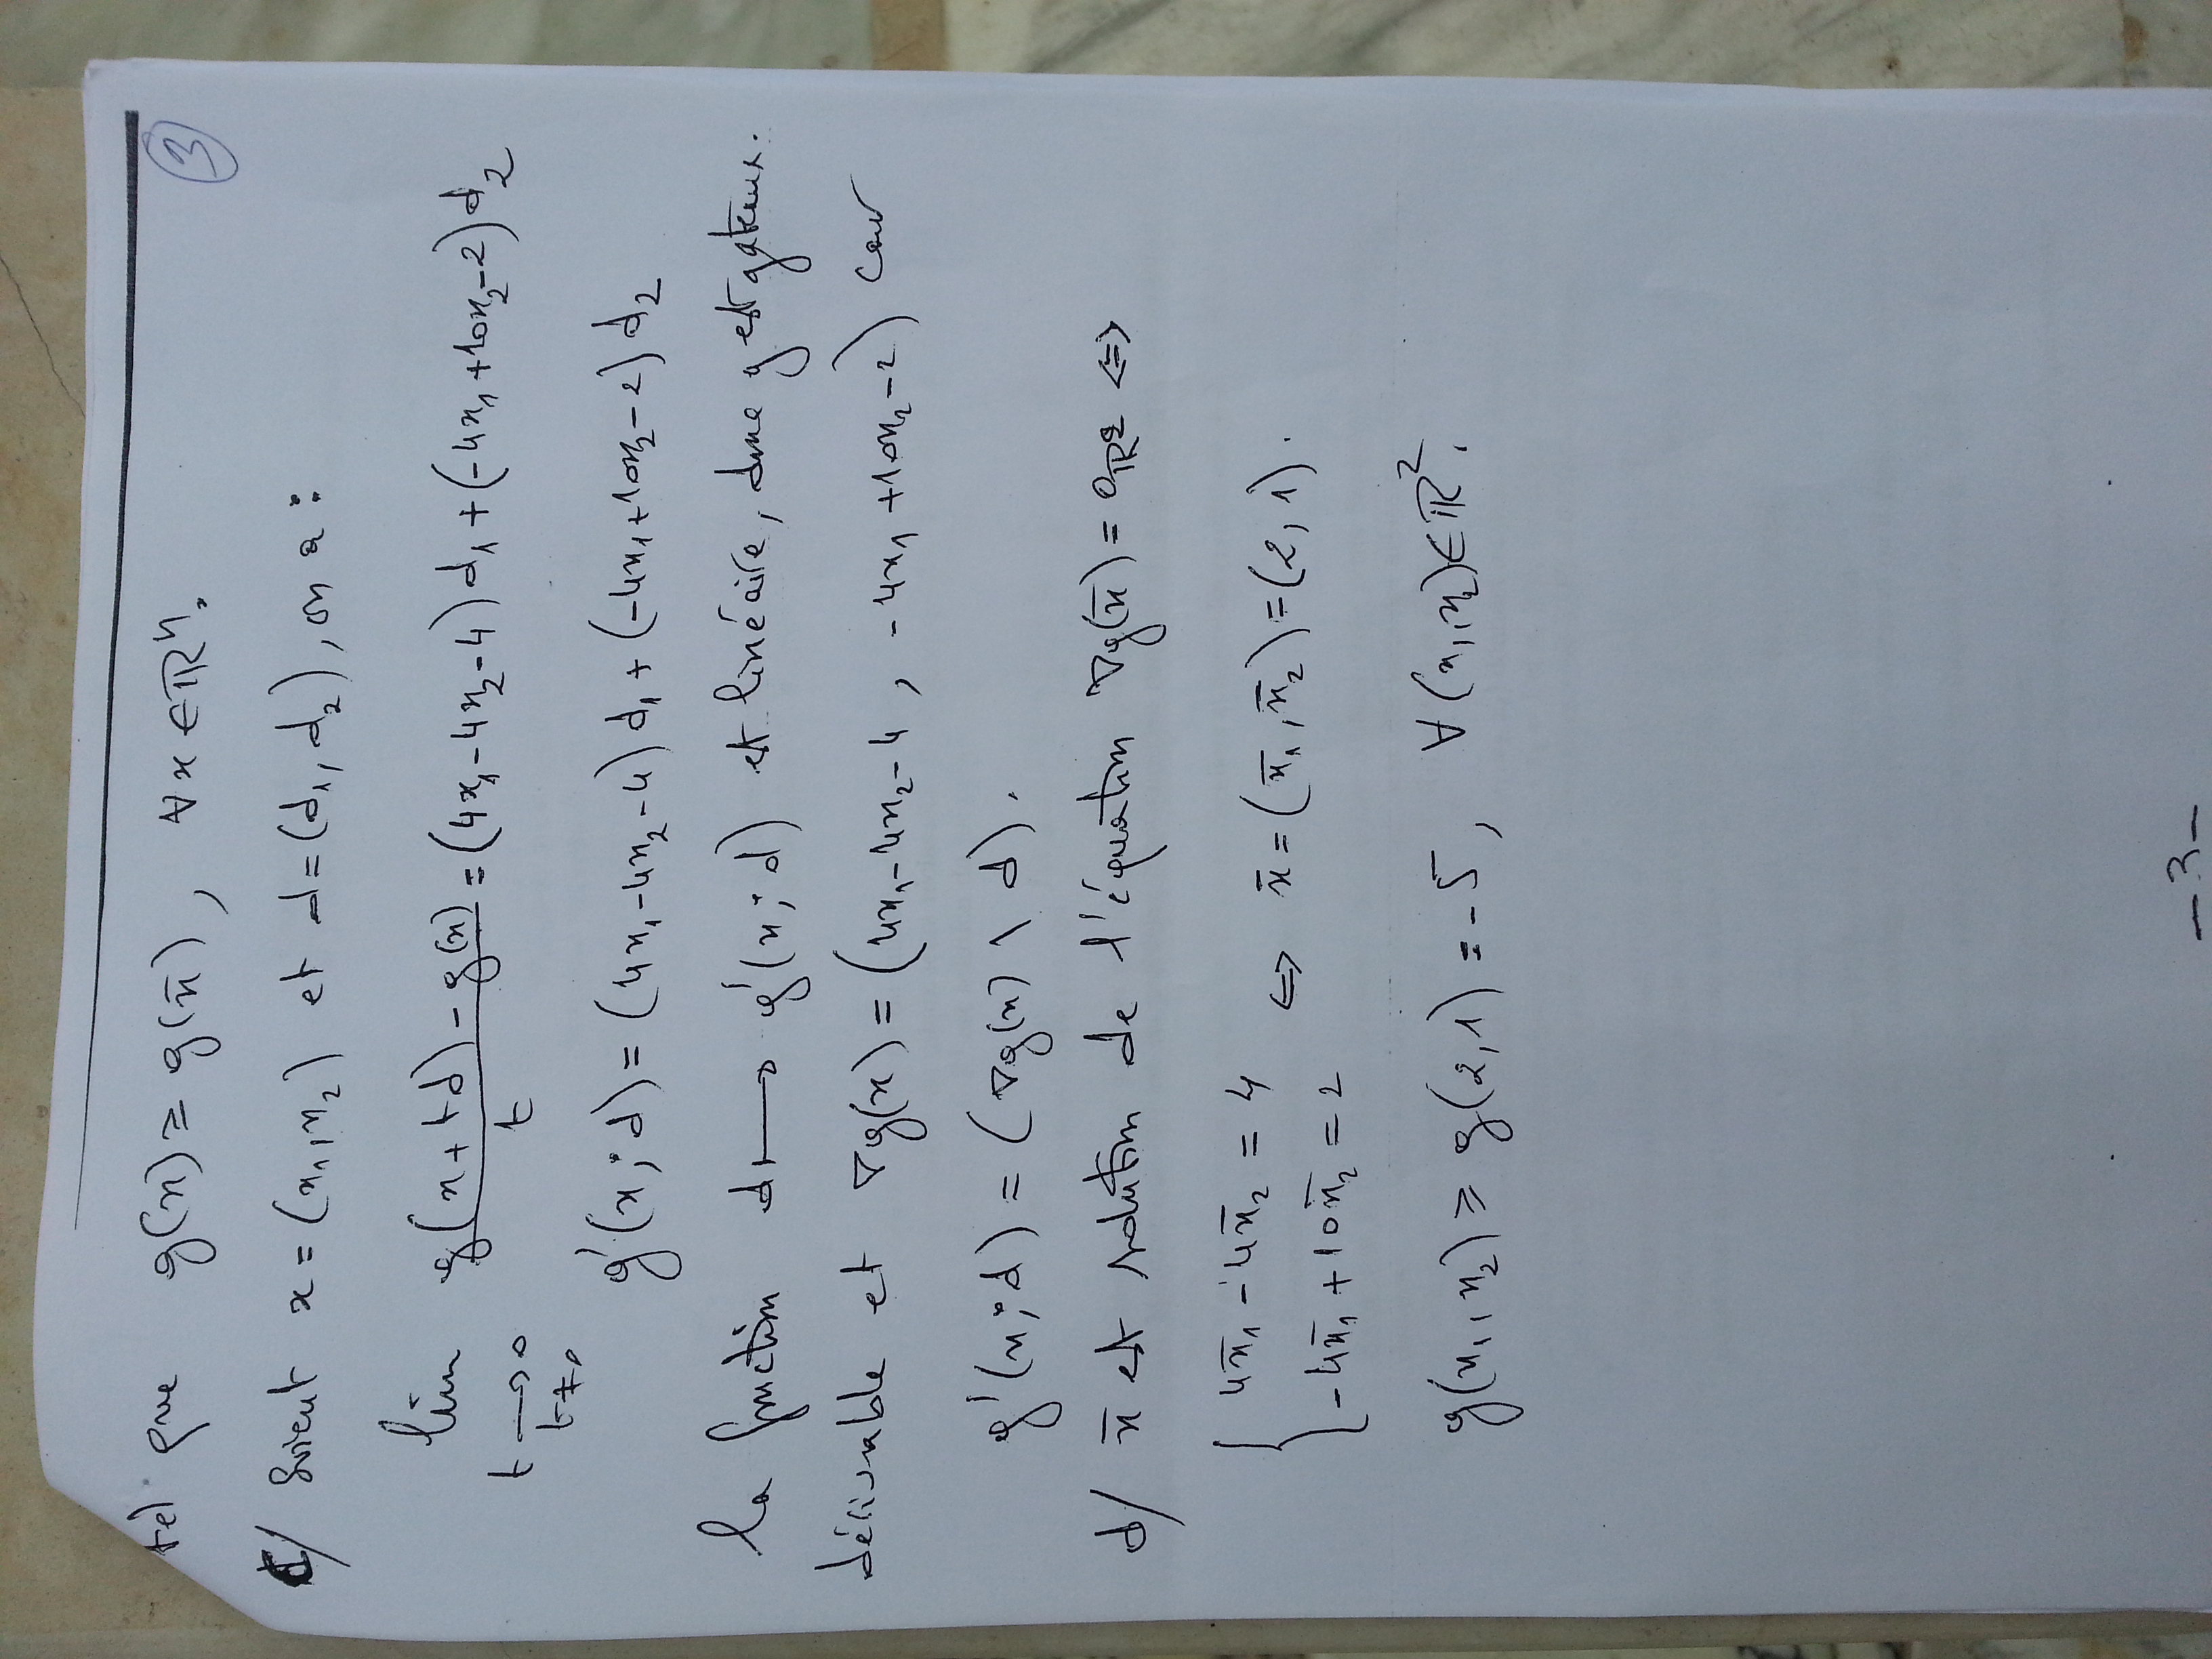 tel que g(x) ≥ g(x̄), ∀x ∈ ℝⁿ.
3
C/ Soient x = (x₁, x₂) et d = (d₁, d₂), on a :
lim g(x + td) - g(x) / t = (4x₁ - 4x₂ - 4) d₁ + (-4x₁ + 10x₂ - 2) d₂
t → 0
t ≠ 0
g'(x; d) = (4x₁ - 4x₂ - 4) d₁ + (-4x₁ + 10x₂ - 2) d₂
la fonction d ⟼ g'(x; d) est linéaire, donc g est gateaux.
dérivable et ∇g(x) = (4x₁ - 4x₂ - 4, -4x₁ + 10x₂ - 2) car
g'(x; d) = (∇g(x) \ d).
d/ x̄ est solution de l'équation ∇g(x̄) = 0ℝ² ⇔
{ 4x̄₁ - 4x̄₂ = 4
-4x̄₁ + 10x̄₂ = 2 ⇔ x̄ = (x̄₁, x̄₂) = (2, 1).
g(x₁, x₂) ≥ g(2, 1) = -5, ∀(x₁, x₂) ∈ ℝ².
-3-